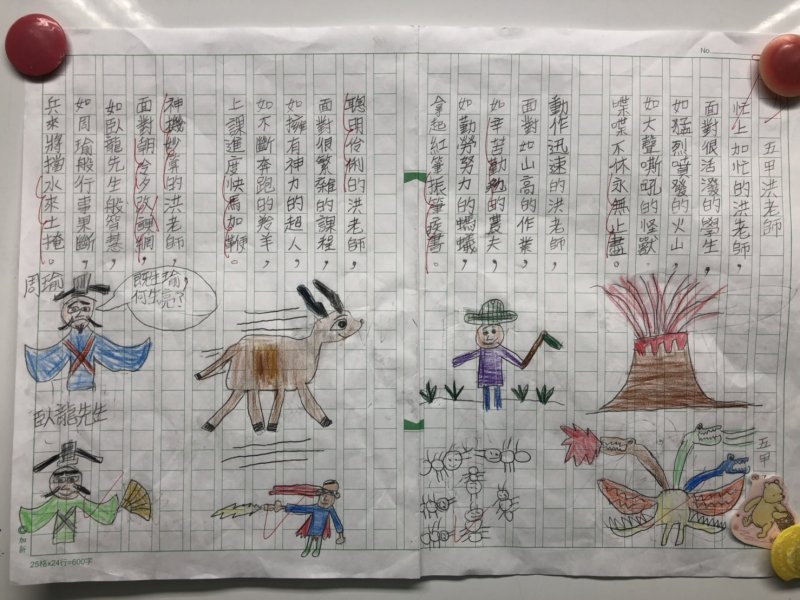 No.
五甲洪老師
忙上加忙的洪老師，
面對很活潑的學生，
如猛烈噴發的火山，
如大聲嘶吼的怪獸，
喋喋不休永無止盡。
動作迅速的洪老師，
面對如山高的作業，
如辛苦勤勉的農夫，
如勤勞努力的螞蟻，
拿起紅筆振筆疾書。
聰明伶俐的洪老師，
面對很繁雜的課程，
如擁有神力的超人，
如不斷奔跑的羚羊，
上課進度快馬加鞭。
神機妙算的洪老師，
面對朝令夕改課綱，
如臥龍先生般智慧，
如周瑜般行事果斷，
兵來將擋水來土掩。
周瑜
既生瑜，
何生亮？
臥龍先生
五甲
加新
25格x24行=600字